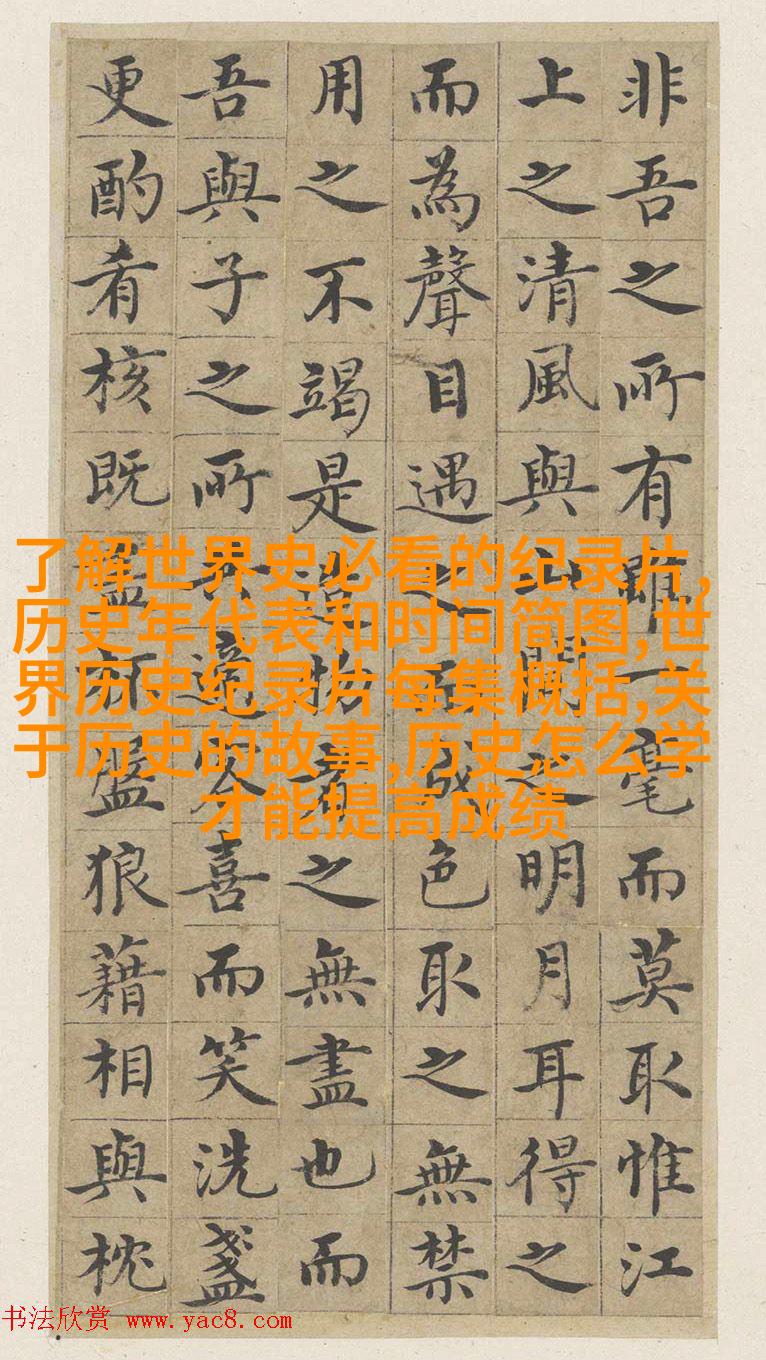 非吾之所有雖一毫而莫取惟江
上之清風與山間之明月耳得之
而為聲目遇之而成色取之無禁
用之不竭是造物者之無盡也而
吾與子之所共適客喜而笑洗盞
更酌肴核既盡杯盤狼藉相與枕
了解世界史必看的纪录片,
历史年代表和时间简图,世
界历史纪录片每集概括,关
于历史的故事,历史怎么学
才能提高成绩
书法欣赏 www.yac8.com